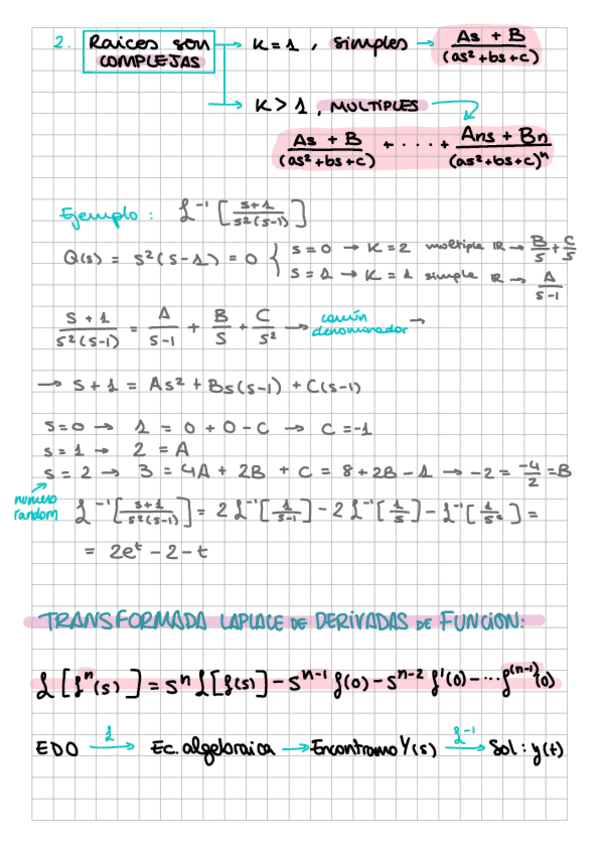 2. Raices son → K = 1, simples → As + B / (as² + bs + c)
COMPLEJAS
→ K > 1, MULTIPLES
As + B / (as² + bs + c) + .... + Ans + Bn / (as² + bs + c)ⁿ
Ejemplo: ℒ⁻¹ [ s+1 / s²(s-1) ]
Q(s) = s²(s-1) = 0 { s = 0 → K = 2 multiple ℝ → B/s + C/s
s = 1 → K = 1 simple ℝ → A / s-1
s + 1 / s²(s-1) = A / s-1 + B / s + C / s² → común denominador →
→ s + 1 = As² + Bs(s-1) + C(s-1)
s = 0 → 1 = 0 + 0 - C → C = -1
s = 1 → 2 = A
s = 2 → 3 = 4A + 2B + C = 8 + 2B - 1 → -2 = -4/2 = B
numero random
ℒ⁻¹ [ s+1 / s²(s-1) ] = 2 ℒ⁻¹ [ 1 / s-1 ] - 2 ℒ⁻¹ [ 1 / s ] - ℒ⁻¹ [ 1 / s² ] =
= 2eᵗ - 2 - t
TRANSFORMADA LAPLACE DE DERIVADAS DE FUNCION:
ℒ [ fⁿ(s) ] = sⁿ ℒ [f(s)] - sⁿ⁻¹ f(0) - sⁿ⁻² f'(0) - ... f⁽ⁿ⁻¹⁾(0)
EDO —ℒ→ Ec. algebraica → Encontramo Y(s) —ℒ⁻¹→ Sol: y(t)